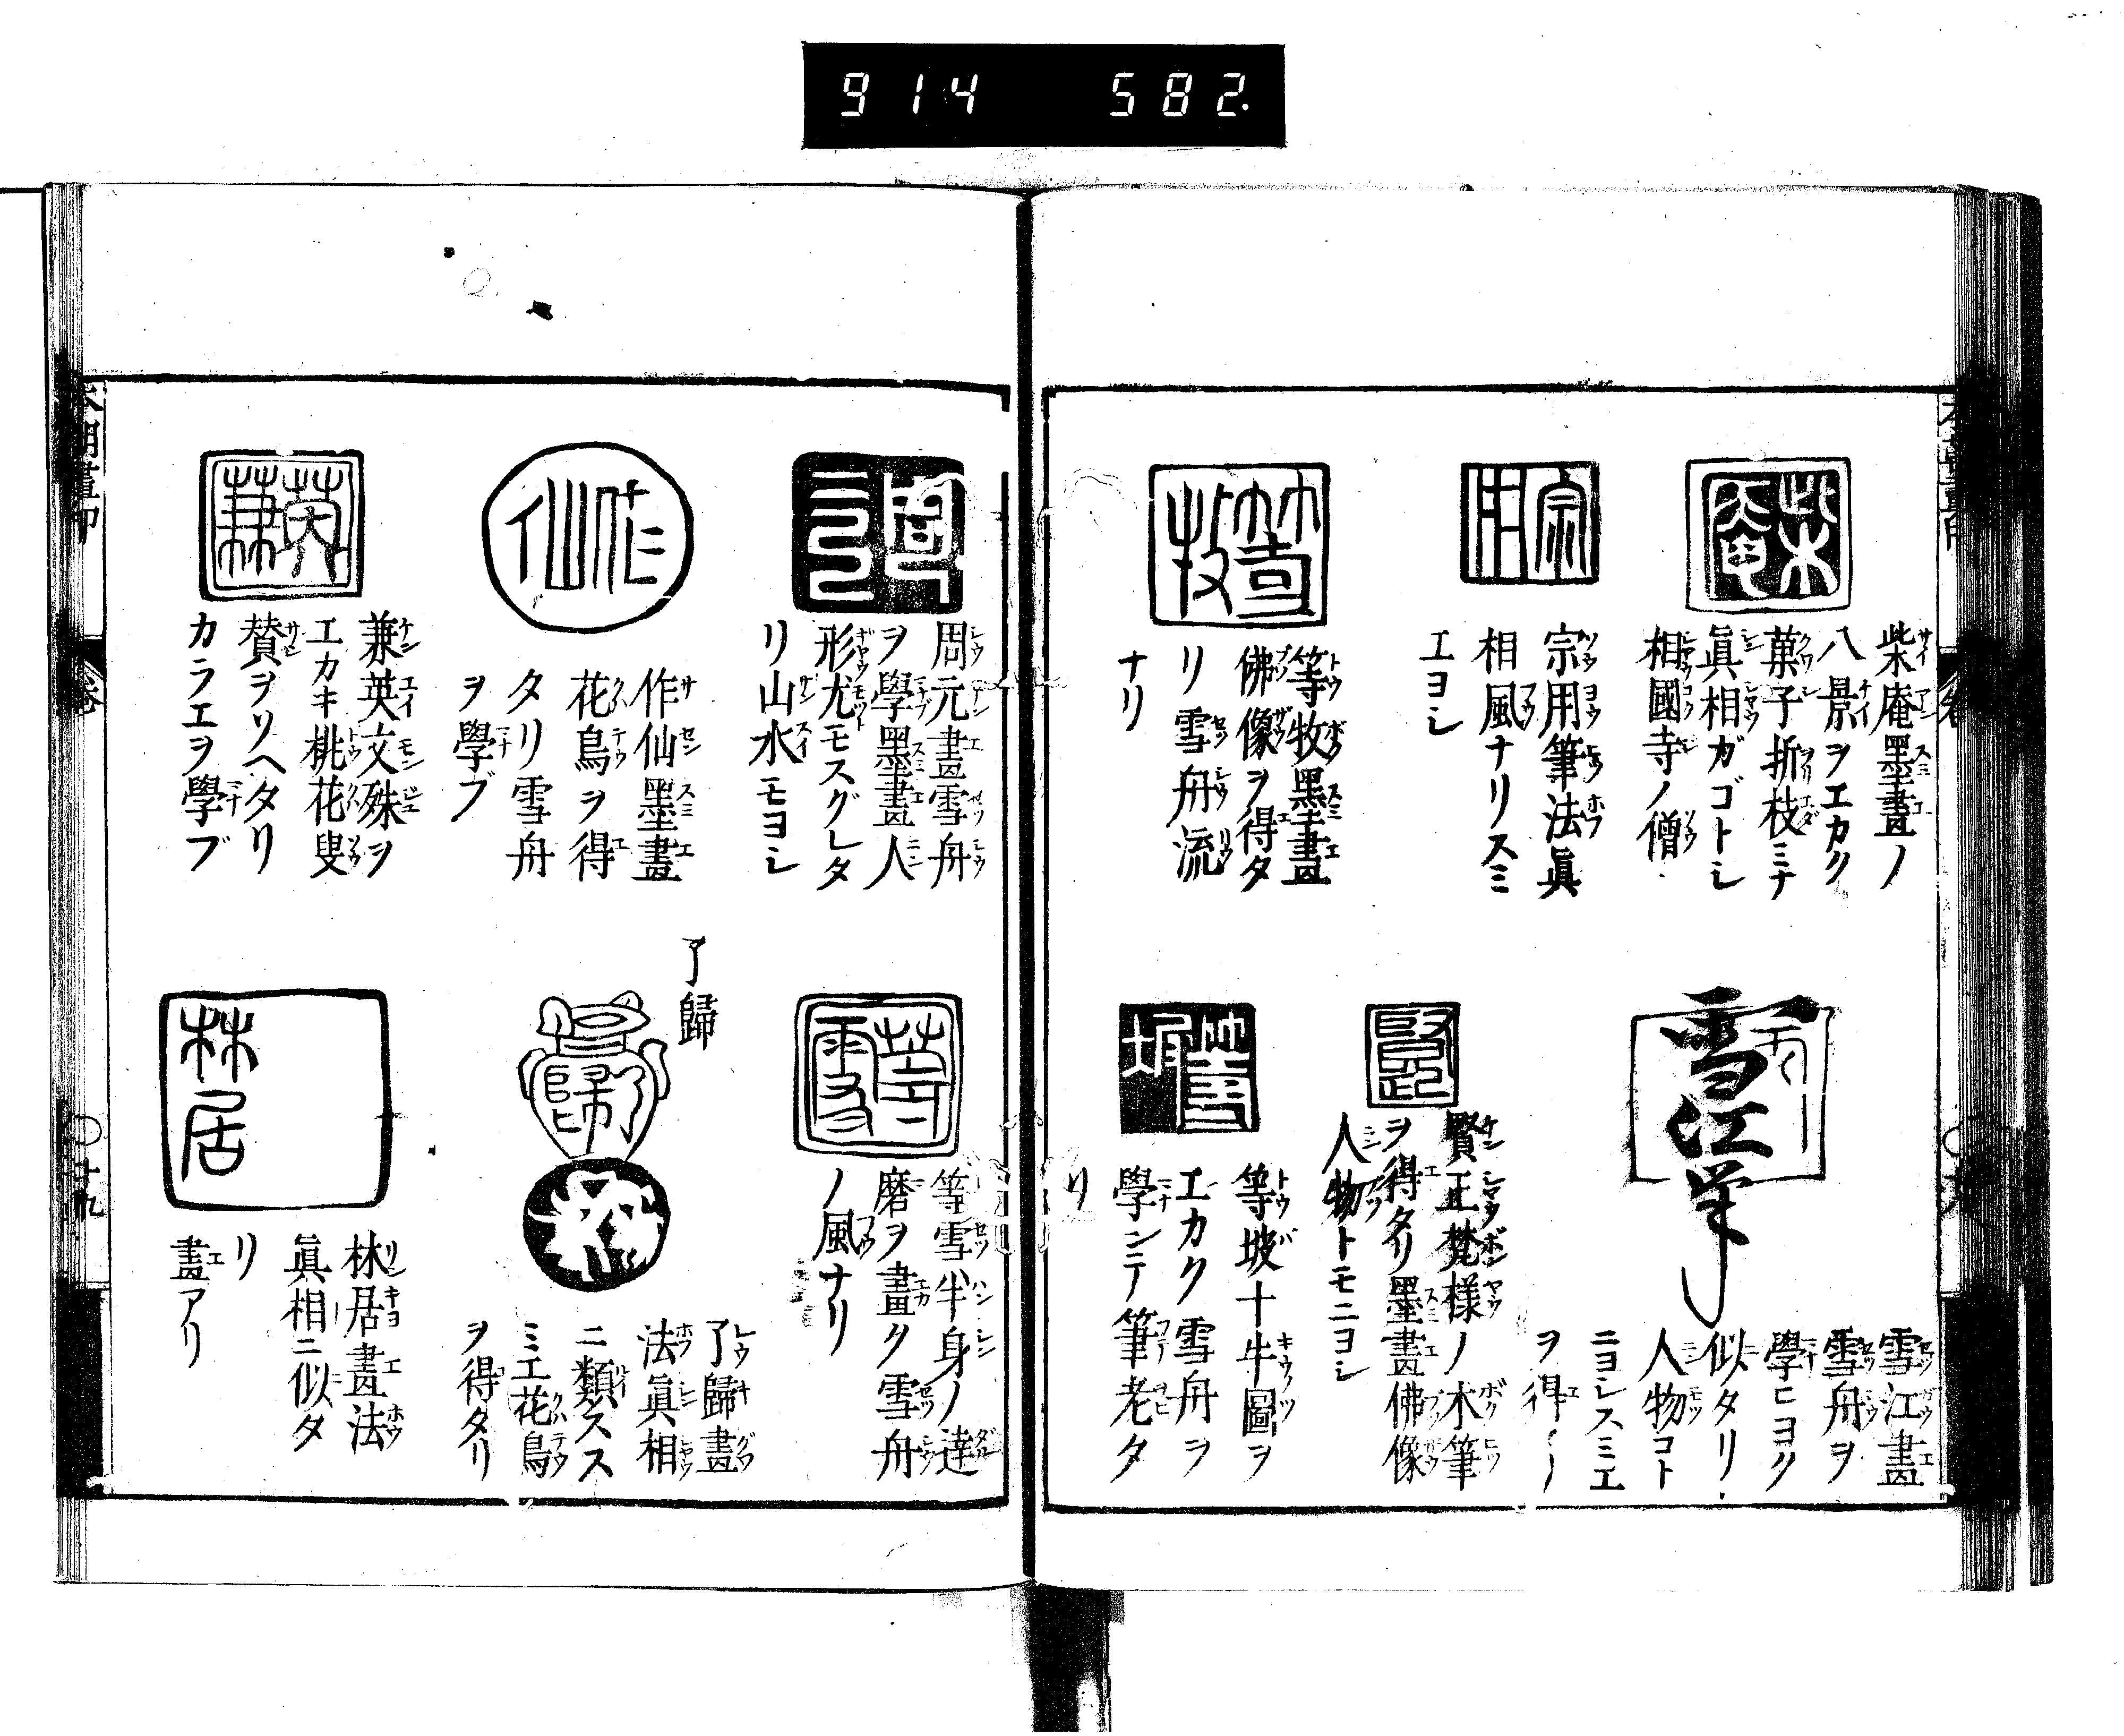 914 582
柴庵墨畫ノ
八景ヲエカク
菓子折枝ミナ
眞相ガゴトシ
相國寺ノ僧
宗用筆法眞
相風ナリスミ
エヨシ
等牧墨畫
佛像ヲ得タ
リ雪舟流
ナリ
雪江筆
雪江畫
雪舟ヲ
學ヒヨク
似タリ
人物コト
ニヨシスミエ
ヲ得
賢正梵様ノ木筆
ヲ得タリ墨畫佛像
人物トモニヨシ
等坡十牛圖ヲ
エカク雪舟ヲ
學ンニテ筆老タ
リ
周元畫雪舟
ヲ學墨畫人
形尤モスグレタ
リ山水モヨシ
作仙
作仙墨畫
花鳥ヲ得
タリ雪舟
ヲ學ブ
英兼
兼英文殊ヲ
エカキ桃花叟
賛ヲソヘタリ
カラエヲ學ブ
等雪
等雪半身ノ達
磨ヲ畫ク雪舟
ノ風ナリ
了歸
了歸
了歸畫
法眞相
ニ類スス
ミエ花鳥
ヲ得タリ
林居
林居畫法
眞相ニ似タ
リ
畫アリ